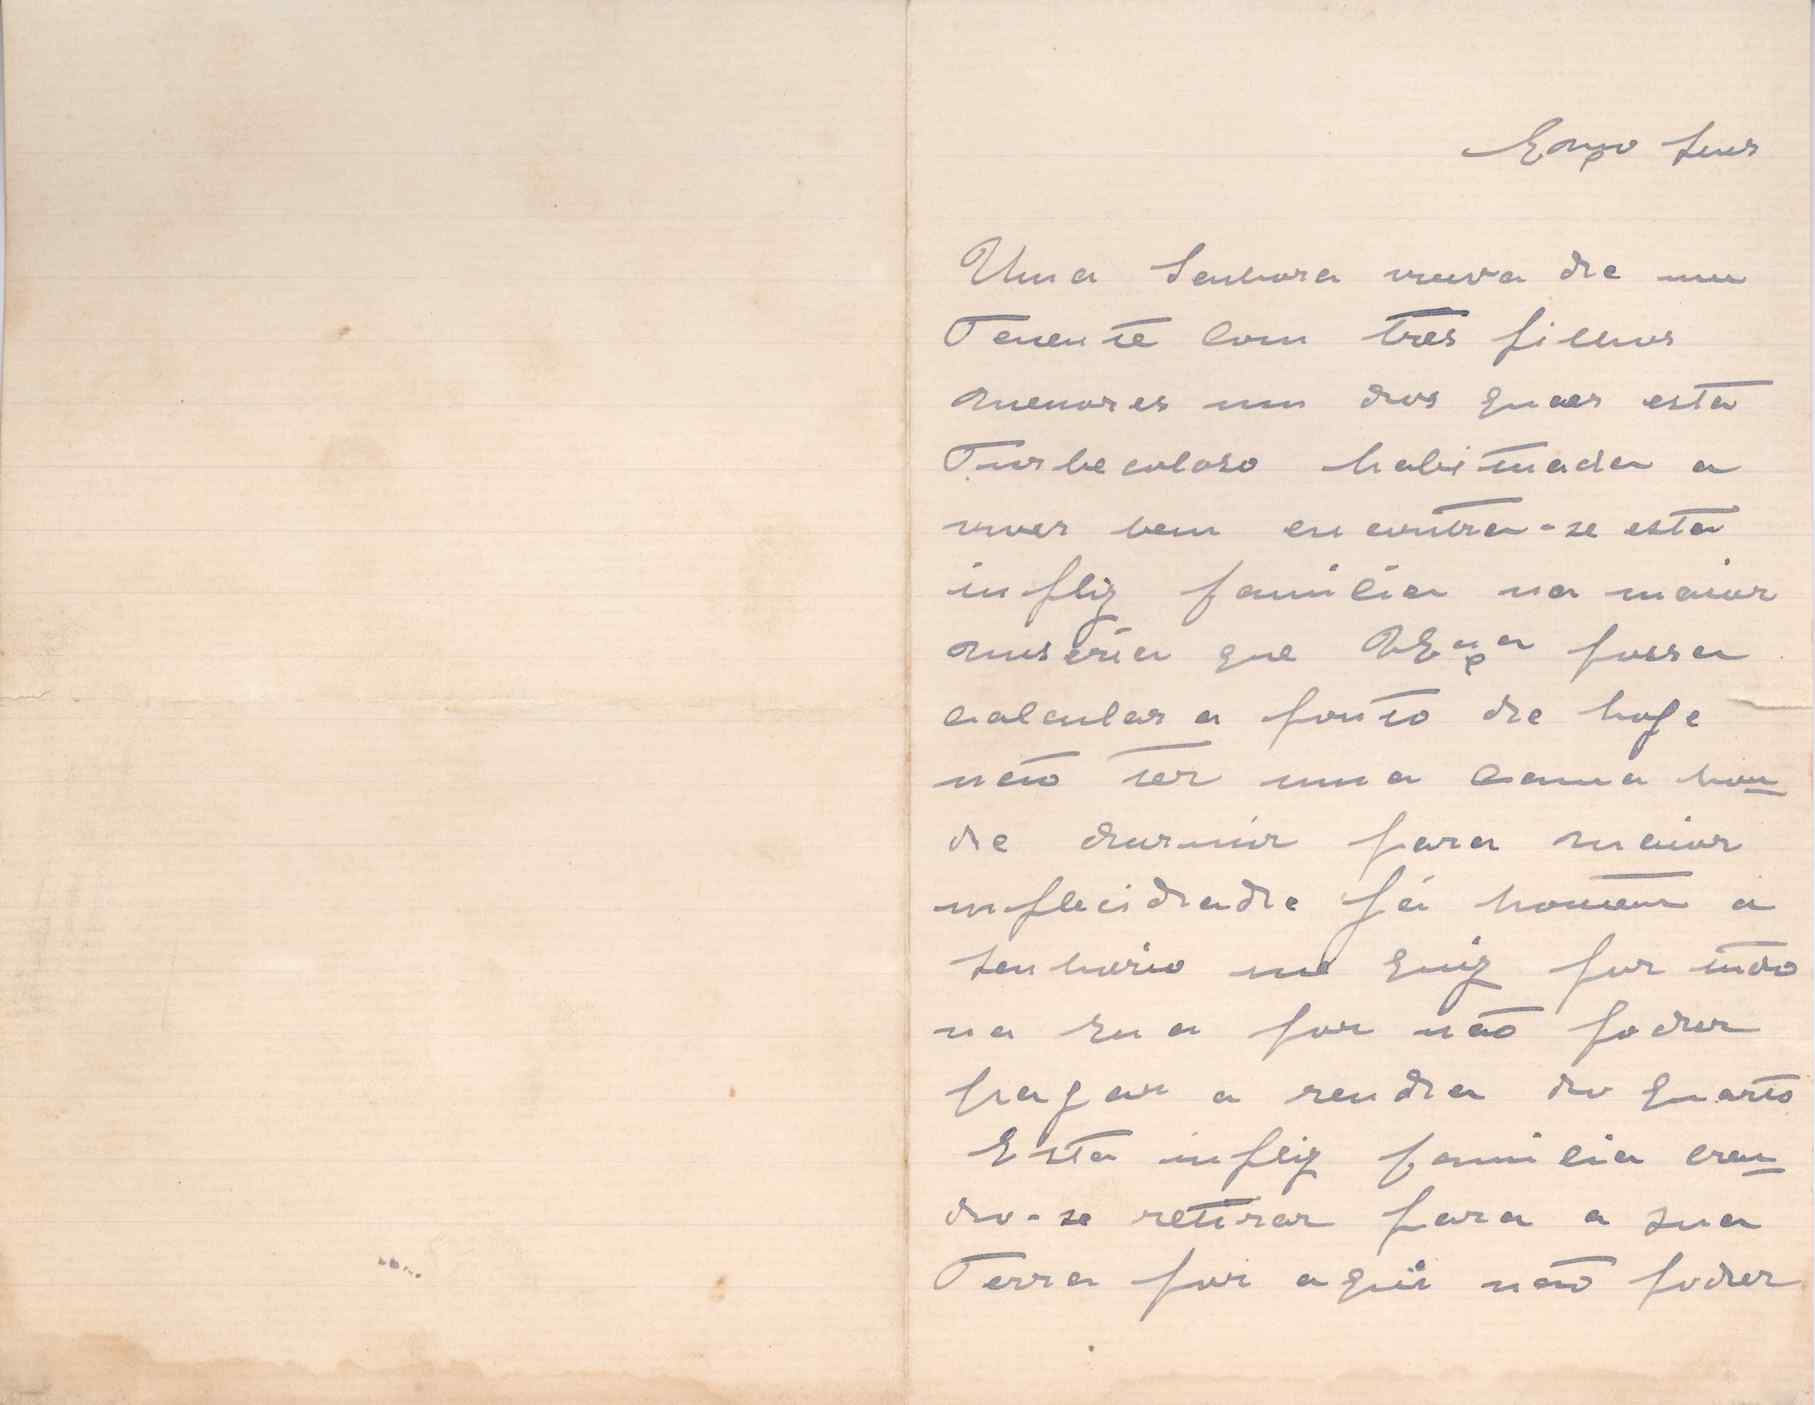 Exmo Senr
Uma Senhora viuva de um
Tenente com tres filhos
menores um dos quaes esta
Turbecoloso habituada a
viver bem encontra-se esta
infliz familia na maior
miseria que VExa possa
calcular a ponto de hoje
não ter uma cama hon-
de durmir para maior
inflecidade já hontem o
senhorio no quiz por tudo
na rua por não poder
pagar a renda do quarto
Esta infliz familia cren-
do-se retirar para a sua
Terra por aqui não poder